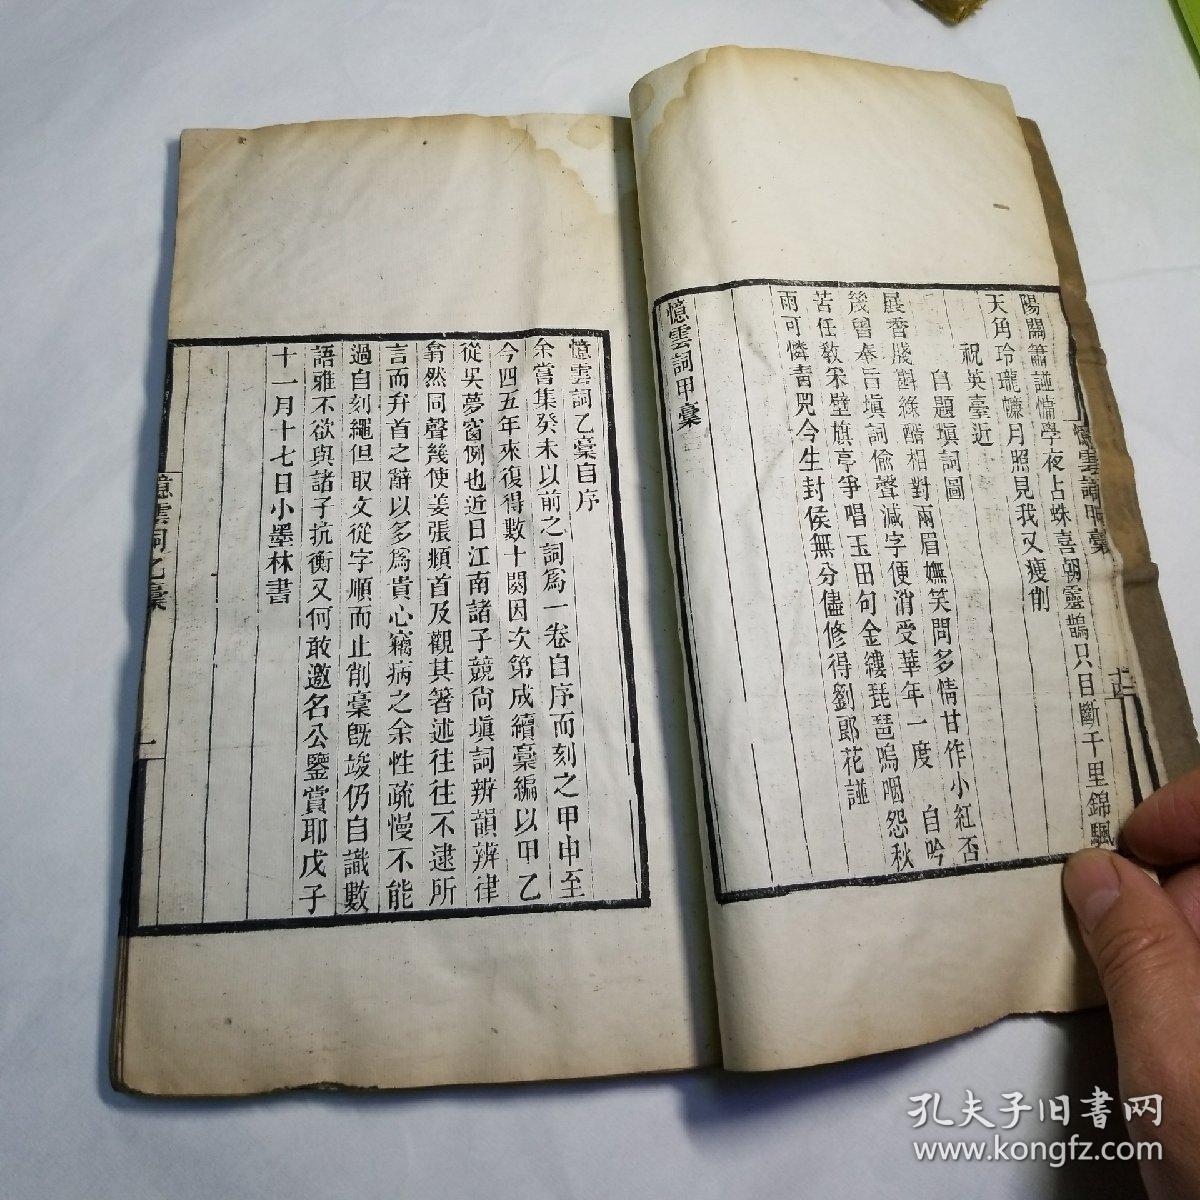 陽關簫譜慵學夜占蛛喜朝靈鵲只目斷千里錦颿
天角玲瓏簾月照見我又瘦削
祝英臺近
自題塡詞圖
展香牋斟綠醑相對兩眉嫵笑問多情甘作小紅否
幾曾奉旨塡詞偷聲減字便消受華年一度　自吟
苦任敎朵壁旗亭爭唱玉田句金縷琵琶嗚咽怨秋
雨可憐靑兕今生封侯無分儘修得劉郎花譜
憶雲詞甲稾
憶雲詞甲稾
憶雲詞乙稾自序
余嘗集癸未以前之詞爲一卷自序而刻之甲申至
今四五年來復得數十闋因次第成續稾編以甲乙
從吳夢窗例也近日江南諸子競尙塡詞辨韻辨律
翕然同聲幾使姜張頫首及觀其箸述往往不逮所
言而弁首之辭以多爲貴心竊病之余性疏慢不能
過自刻繩但取文從字順而止削稾旣竣仍自識數
語雅不欲與諸子抗衡又何敢邀名公鑒賞耶戊子
十一月十七日小墨林書
憶雲詞乙稾
一
孔夫子旧书网
www.kongfz.com